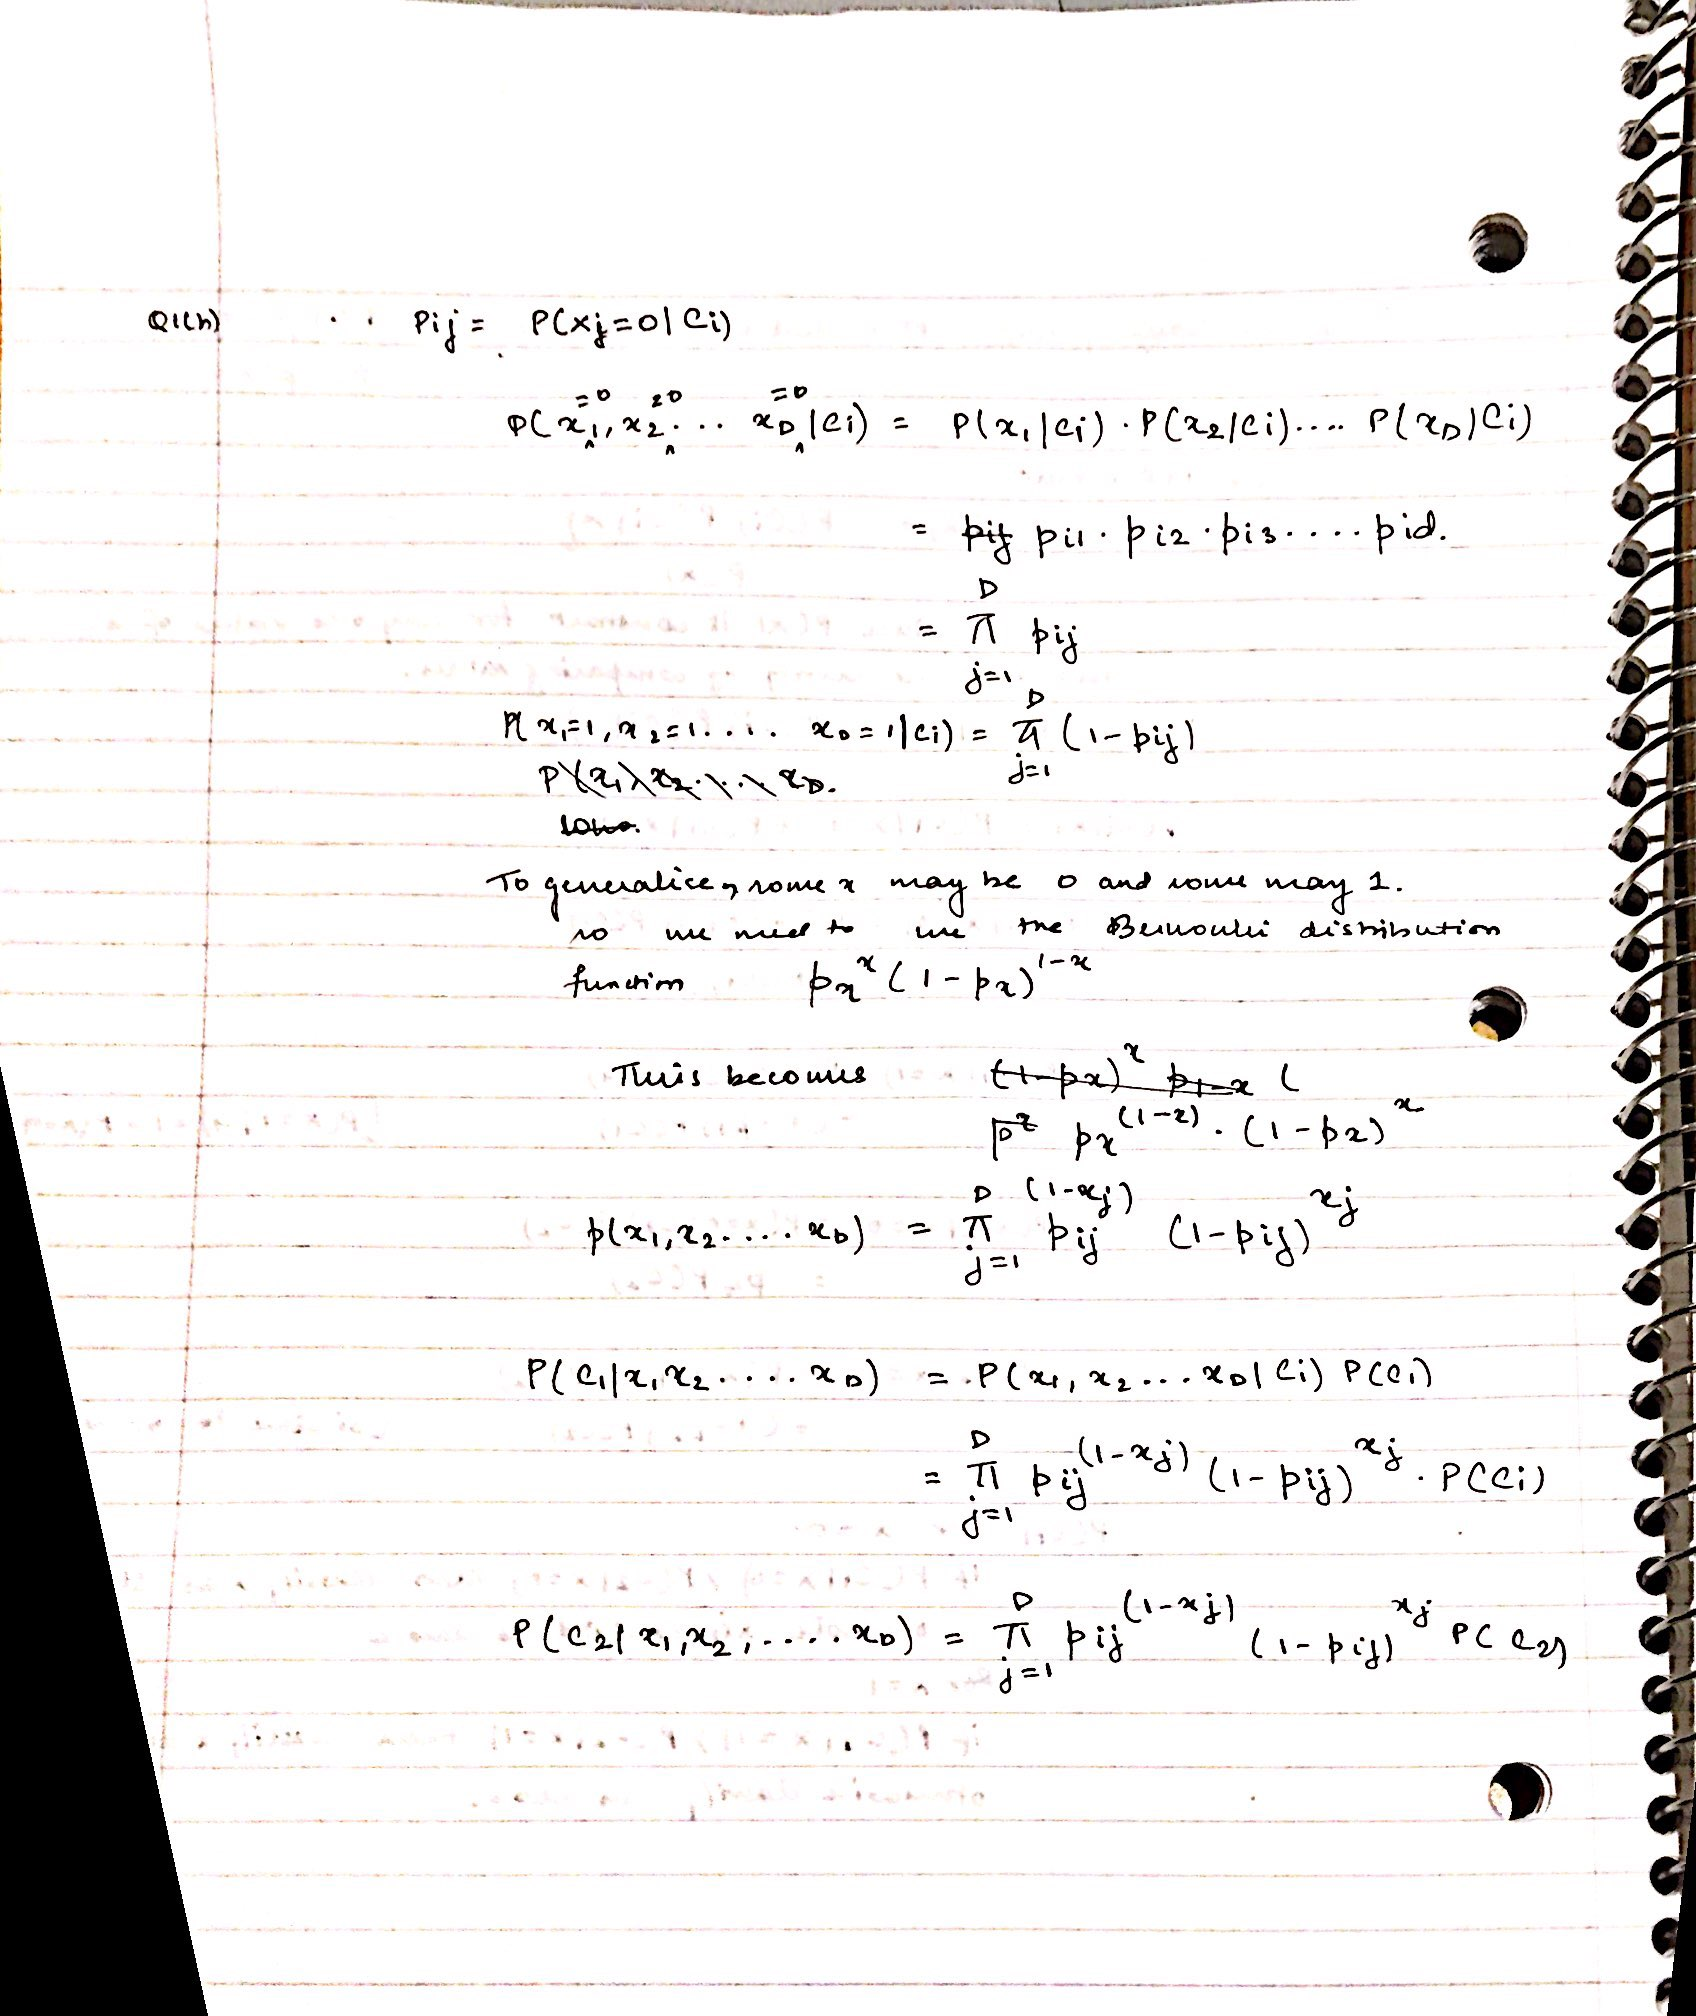 Q1(h) Pij = P(xj=0|Ci)
=0 =0 =0
P(x1, x2 ... xD|Ci) = P(x1|Ci) · P(x2|Ci).... P(xD|Ci)
= pij pi1 · pi2 · pi3 .... pid.
= π_{j=1}^{D} pij
P(x1=1, x2=1.... xD=1|Ci) = π_{j=1}^{D} (1-pij)
P(x1, x2.... xD.
To generalice, some x may be 0 and some may 1.
so we need to use the Bernoulli distribution
function px^x (1-px)^{1-x}
This becomes (1-px)^x p1-x (
px^{(1-x)} · (1-px)^x
p(x1, x2.... xD) = π_{j=1}^{D} pij^{(1-xj)} (1-pij)^{xj}
P(C1|x1 x2 .... xD) = P(x1, x2 ... xD|Ci) P(Ci)
= π_{j=1}^{D} pij^{(1-xj)} (1-pij)^{xj} · P(Ci)
P(C2|x1, x2, .... xD) = π_{j=1}^{D} pij^{(1-xj)} (1-pij)^{xj} P(C2)